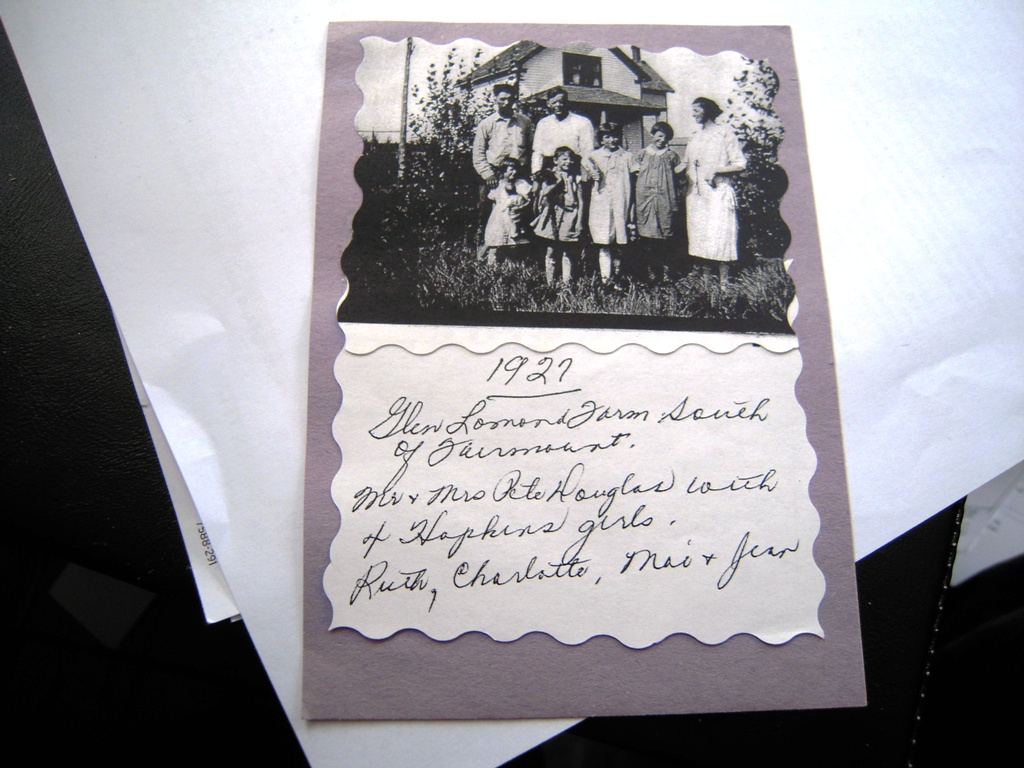 1927
Glen Lomond Farm South
of Fairmount.
Mr + Mrs Pete Douglas with
4 Hopkins girls.
Ruth, Charlotte, Mai + Jean
7588-291